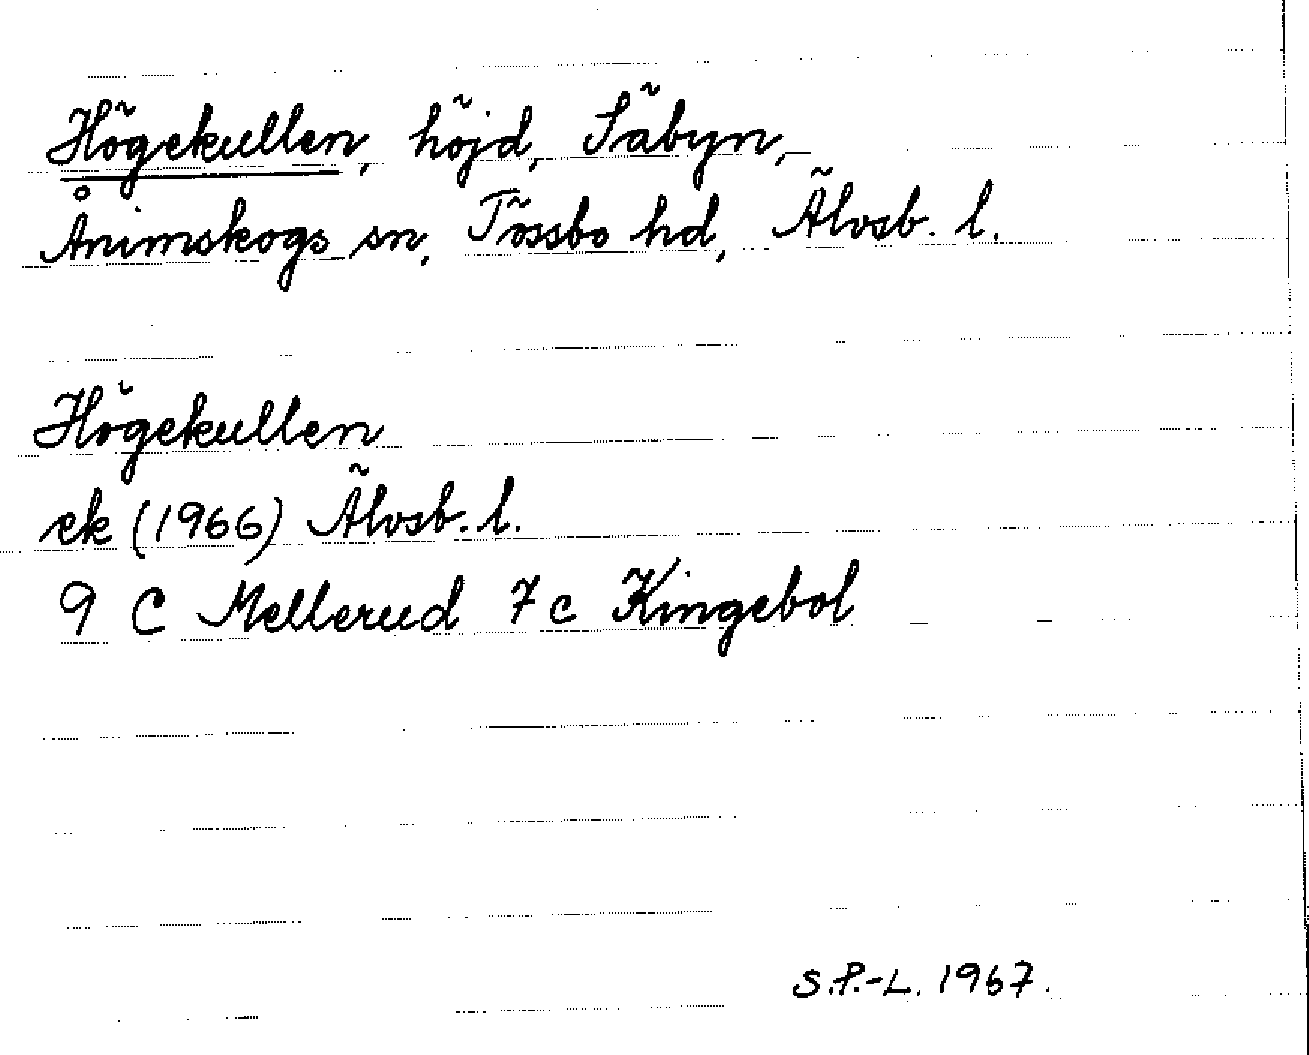 Högekullen, höjd, Säbyn,
Ånimskogs sn, Tössbo hd, Älvsb. l.
Högekullen
ek (1966) Älvsb. l.
9 C Mellerud 7c Kingebol
S.P.-L. 1967.